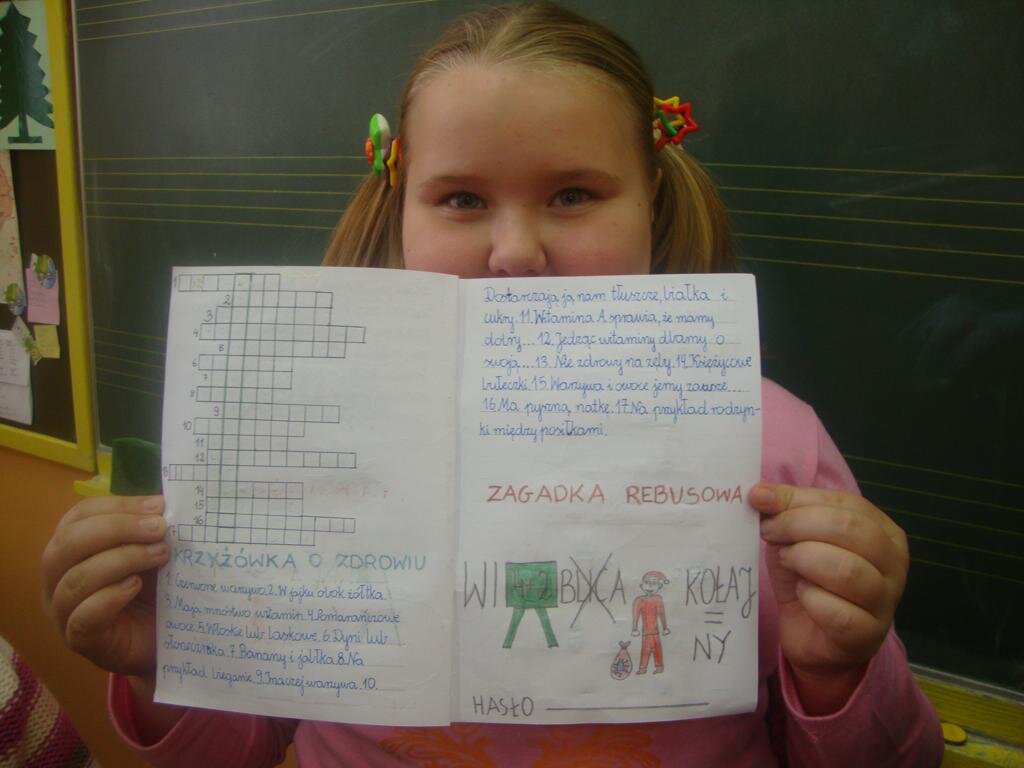 1
2
3
4
5
6
7
8
9
10
11
12
13
14
15
16
17
KRZYŻÓWKA O ZDROWIU
1. Czerwone warzywo. 2. W jajku obok żółtka.
3. Mają mnóstwo witamin. 4. Pomarańczowe
owoce. 5. Włoskie lub laskowe. 6. Dyni lub
słonecznika. 7. Banany i jabłka. 8. Na
przykład bieganie. 9. Inaczej warzywa. 10.
Dostarczają ją nam tłuszcze, białka i
cukry. 11. Witamina A sprawia, że mamy
dobry... 12. Jedząc witaminy dbamy o
swoją... 13. Nie zdrowy na zęby. 14. Księżycowe
bułeczki. 15. Warzywa i owoce jemy zawsze.....
16. Ma pyszną natkę. 17. Na przykład rodzyn-
ki między posiłkami.
ZAGADKA REBUSOWA
WI 4+2 BLICA KOŁAJ
=
NY
HASŁO